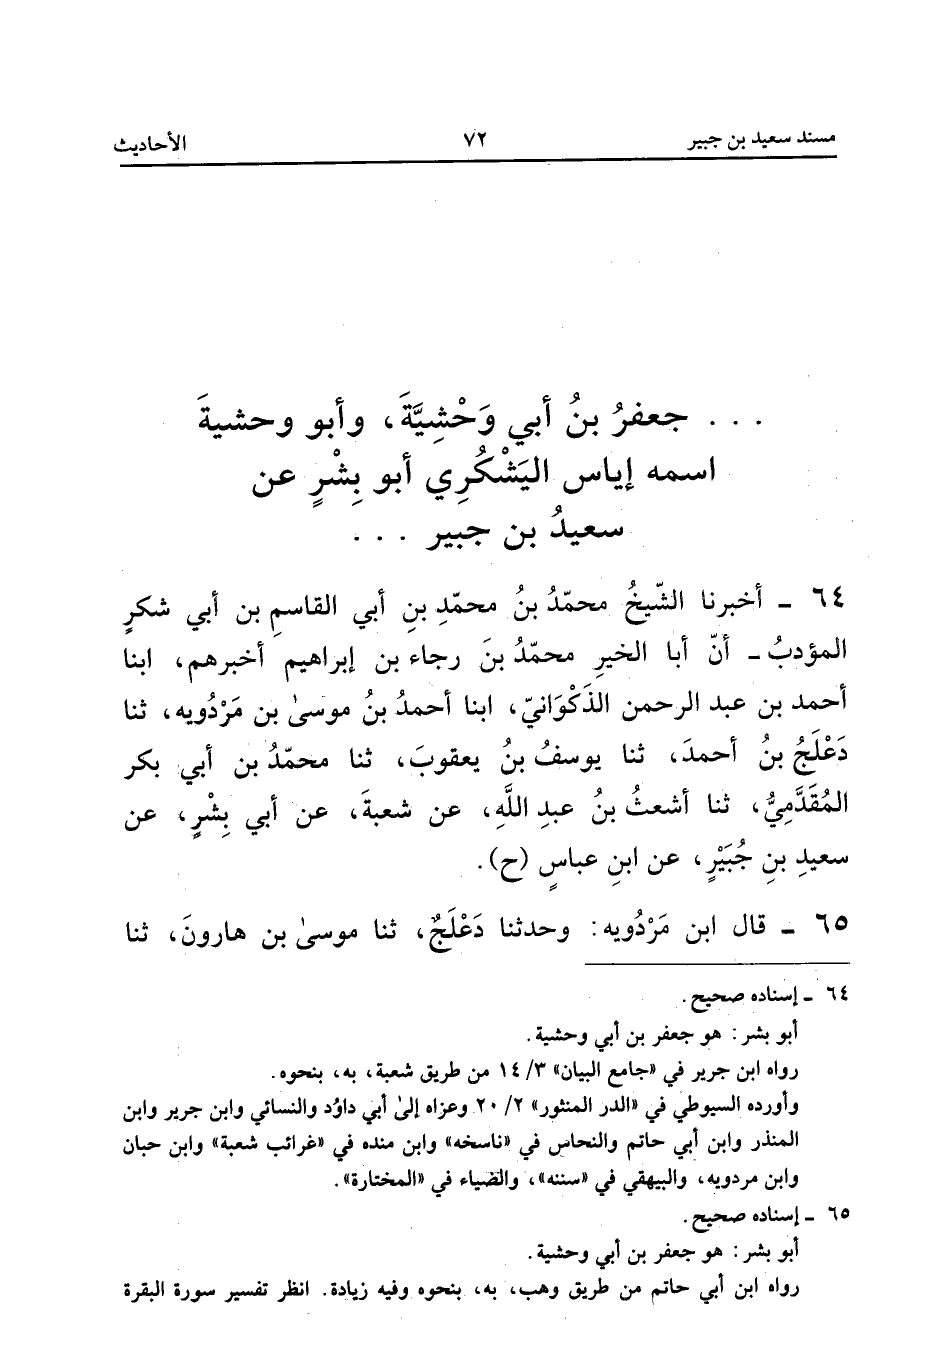 مسند سعيد بن جبير ٧٢ الأحاديث
. . . جعفرُ بنُ أبي وَحْشِيَّةَ، وأبو وحشيةَ
اسمه إياس اليَشْكُرِي أبو بِشْرٍ عن
سعيدُ بن جبير . . .
٦٤ ـ أخبرنا الشّيخُ محمّدُ بنُ محمّدِ بنِ أبي القاسمِ بن أبي شكرٍ
المؤدبُ ـ أنّ أبا الخيرِ محمّدُ بنَ رجاء بن إبراهيم أخبرهم، ابنا
أحمد بن عبد الرحمن الذَكْوَانيّ، ابنا أحمدُ بنُ موسىٰ بن مَرْدُويه، ثنا
دَعْلَجُ بنُ أحمدَ، ثنا يوسفُ بنُ يعقوبَ، ثنا محمّدُ بن أبي بكر
المُقَدَّمِيُّ، ثنا أشعثُ بنُ عبدِ اللَّهِ، عن شعبةَ، عن أبي بِشْرٍ، عن
سعيدِ بنِ جُبَيْرٍ، عن ابنِ عباسٍ (ح).
٦٥ ـ قال ابن مَرْدُويه: وحدثنا دَعْلَجٌ، ثنا موسىٰ بن هارونَ، ثنا
٦٤ ـ إسناده صحيح.
أبو بشر: هو جعفر بن أبي وحشية.
رواه ابن جرير في «جامع البيان» ٣/ ١٤ من طريق شعبة، به، بنحوه.
وأورده السيوطي في «الدر المنثور» ٢/ ٢٠ وعزاه إلىٰ أبي داوُد والنسائي وابن جرير وابن
المنذر وابن أبي حاتم والنحاس في «ناسخه» وابن منده في «غرائب شعبة» وابن حبان
وابن مردويه، والبيهقي في «سننه»، والضياء في «المختارة».
٦٥ ـ إسناده صحيح.
أبو بشر: هو جعفر بن أبي وحشية.
رواه ابن أبي حاتم من طريق وهب، به، بنحوه وفيه زيادة. انظر تفسير سورة البقرة